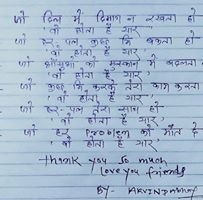 जो दिल में दिमाग न रखता हो
'वो होता है यार'
जो हर-पल कुछ भी बकता हो
'वो होता है यार'
जो आँसुओं को मुस्कान में बदलता
'वो होता है यार'
जो कुछ भी करके तेरा काम करता
'वो होता है यार'
जो हर-पल तेरा साथ हो
'वो होता है यार'
जो हर Problem को मात दे
'वो होता है यार'
Thank you so much
love you friends
BY-